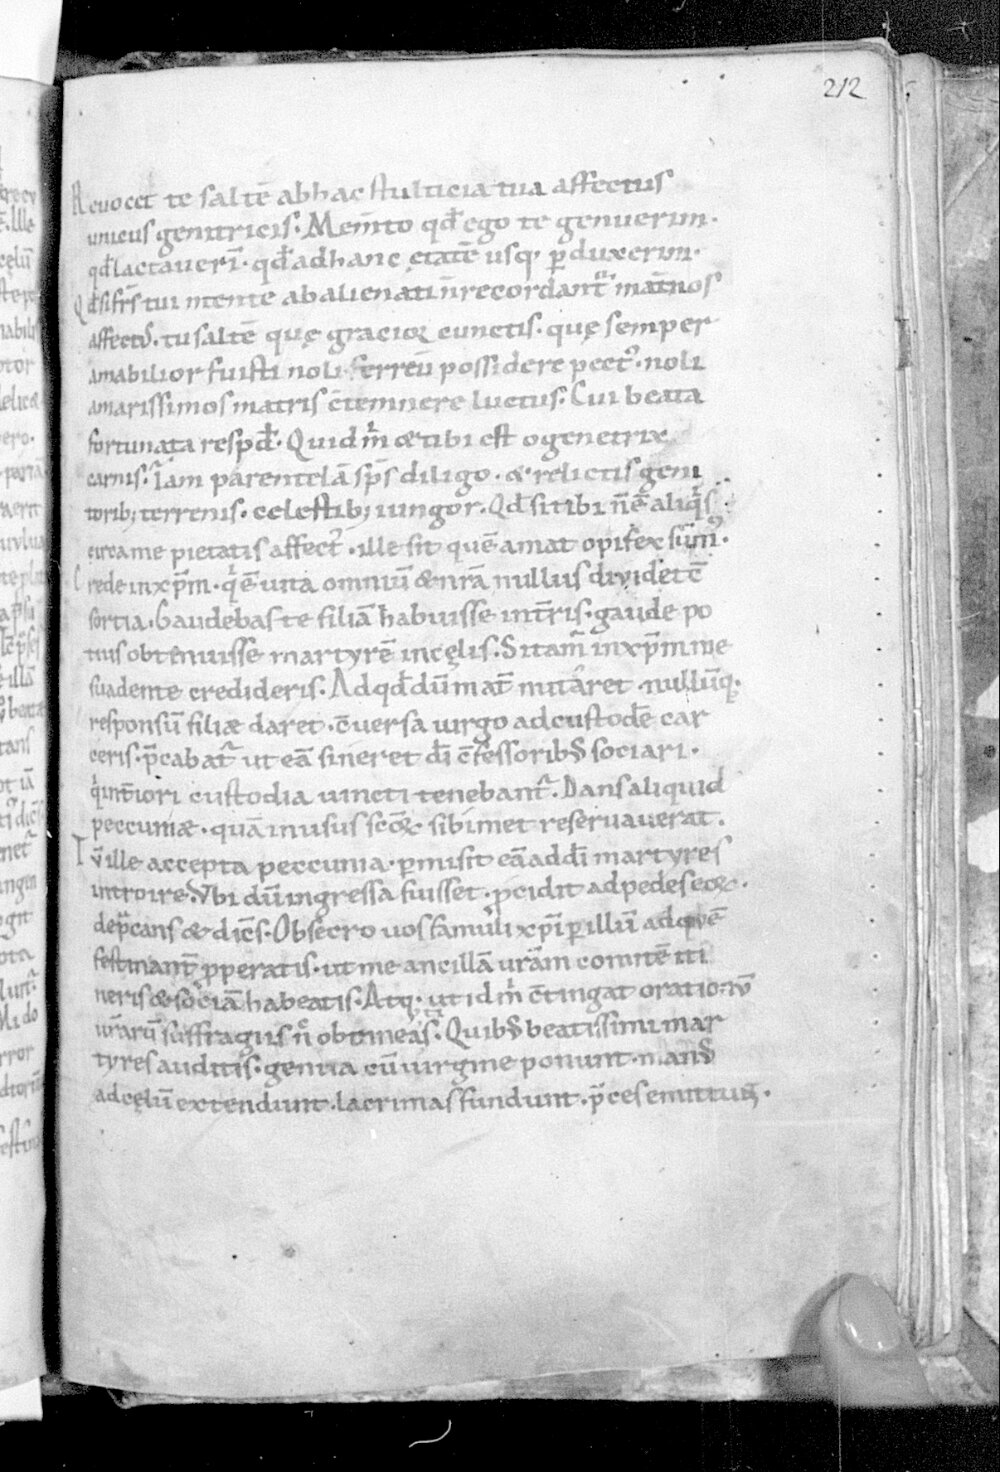 212
Reuocet te saltē ab hac stulticia tua affectus
unicus genitricis. Mem̄to qđ ego te genuerim.
qđ lactauerī. qđ ad hanc ętatē usq; p̄duxerim.
Qđ si frs̄ tui mente abalienati n̄ recordant̄ mat̄nos
affect᷒. tu saltē quę gracior cunctis. quę semper
amabilior fuisti noli ferreū possidere pect᷒. noli
amarissimos matris c̄temnere luctus. Cui beata
fortunata respđ. Quid m̄ & tibi est o genetrix
carnis. Iam parentelā sp̄s diligo. & relictis geni
torib; terrenis. celestib; iungor. Qđ si tibi n̄ē aliq̄s
circa me pietatis affect᷒. ille sit quē amat opifex sūm᷒.
Crede in xp̄m. q̄ ē uita omniū & nr̄ā nullus diuidet c̄
sortia. Gaudebas te filiā habuisse in t̄ris. gaude po
tius obtinuisse martyrē in cęlis. Si tam̄ in xp̄m me
suadente credideris. Ad qđ dū mat̄ mutaret. nullūq;
responsū filiæ daret. c̄uersa uirgo ad custodē car
ceris. p̄cabat̄ ut eā sineret dī c̄fessorib᷒ sociari.
q̄ int̄iori custodia uincti tenebant̄. Dans aliquid
peccuniæ. quā in usus sc̄o℞ sibimet reseruauerat.
Tc̄ ille accepta peccunia. p̄misit eā ad dī martyres
introire. Vbi dū ingressa fuisset. p̄cidit ad pedes eo℞.
dep̄cans & dicēs. Obsecro uos famuli xp̄i p̄ illū ad quē
festinant̄ p̄peratis. ut me ancillā ur̄am comitē iti
neris & sociā habeatis. Atq; ut id m̄ c̄tingat oratio℞
ur̄arū suffragiis n̄ obtineatis. Quib᷒ beatissimi mar
tyres auditis. genua cū uirgine ponunt. man᷒
ad cęlū extendunt. lacrimas fundunt. p̄ces emittun̄t.